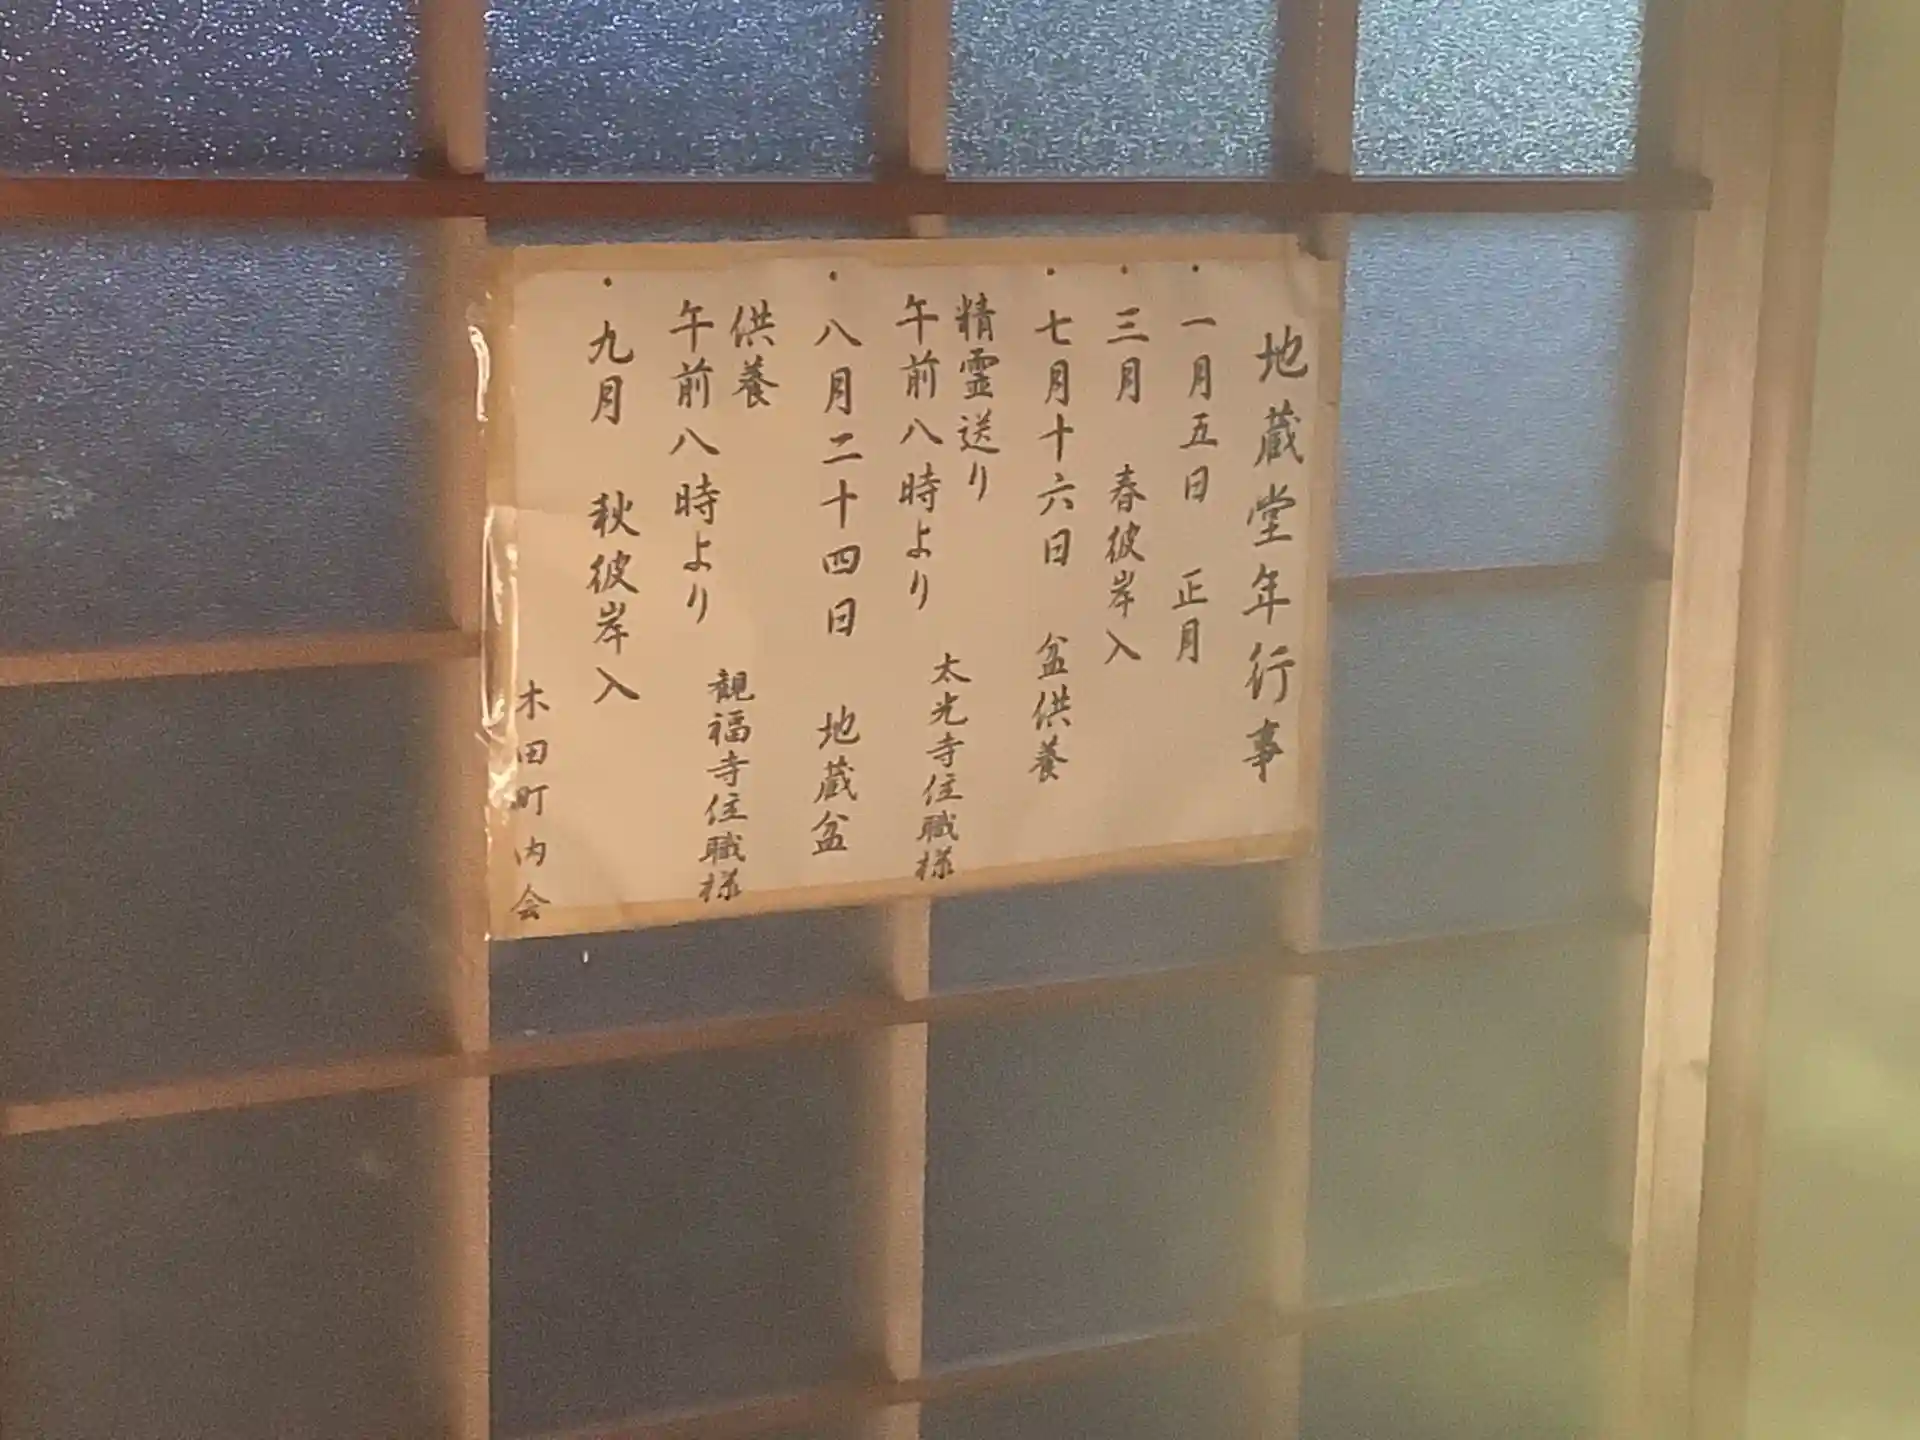 地蔵堂年行事
・一月五日 正月
・三月 春彼岸入
・七月十六日 盆供養
精霊送り
午前八時より 太光寺住職様
・八月二十四日 地蔵盆
供養
午前八時より 観福寺住職様
・九月 秋彼岸入
木田町内会